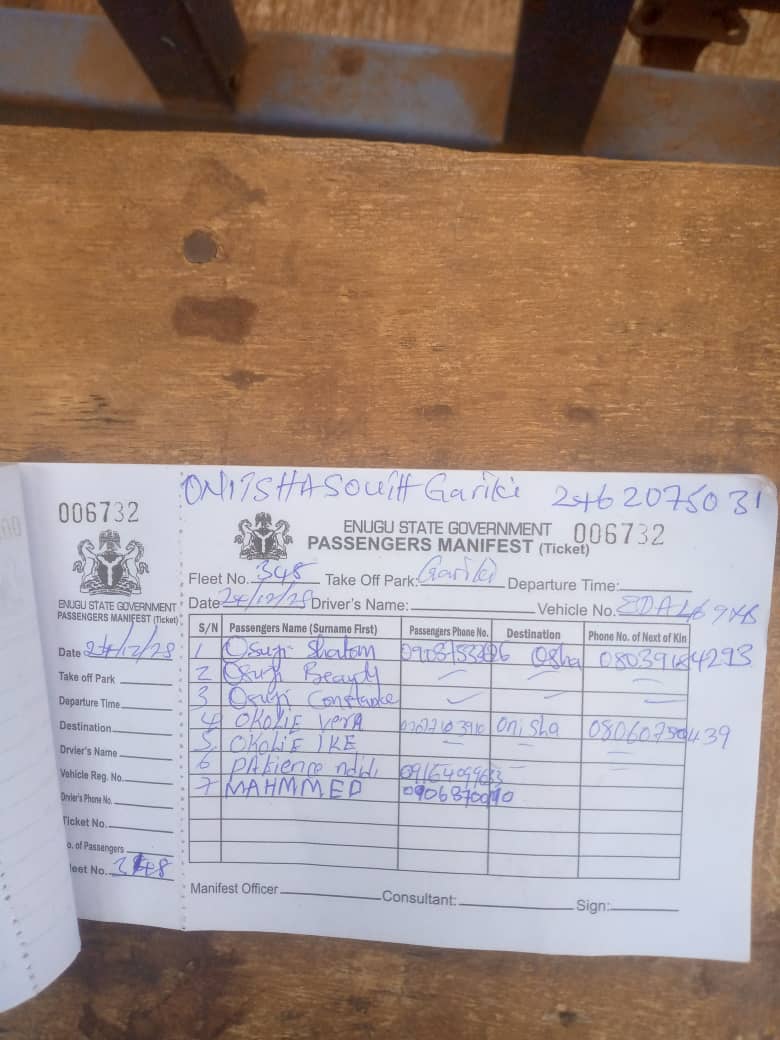 ONITSHA SOUTH Gariki 2462075031
006732
ENUGU STATE GOVERNMENT
PASSENGERS MANIFEST (Ticket)
Date 24/12/28
Take off Park
Departure Time
Destination
Drvier's Name
Vehicle Reg. No.
Driver's Phone No.
Ticket No.
o. of Passengers
leet No. 348
ENUGU STATE GOVERNMENT 006732
PASSENGERS MANIFEST (Ticket)
Fleet No. 348 Take Off Park: Gariki Departure Time:
Date 24/12/28 Driver's Name: Vehicle No.
S/N Passengers Name (Surname First) Passengers Phone No. Destination Phone No. of Next of Kin
1 Osuji Shalom Osha 08039184293
2 Osuji Beauty
3 Osuji Constance
4 OKOLIE VERA Onisha 08060750439
5 OKOLIE IKE
6 PAtience ndidi
7 MAHMMED
Manifest Officer Consultant: Sign: